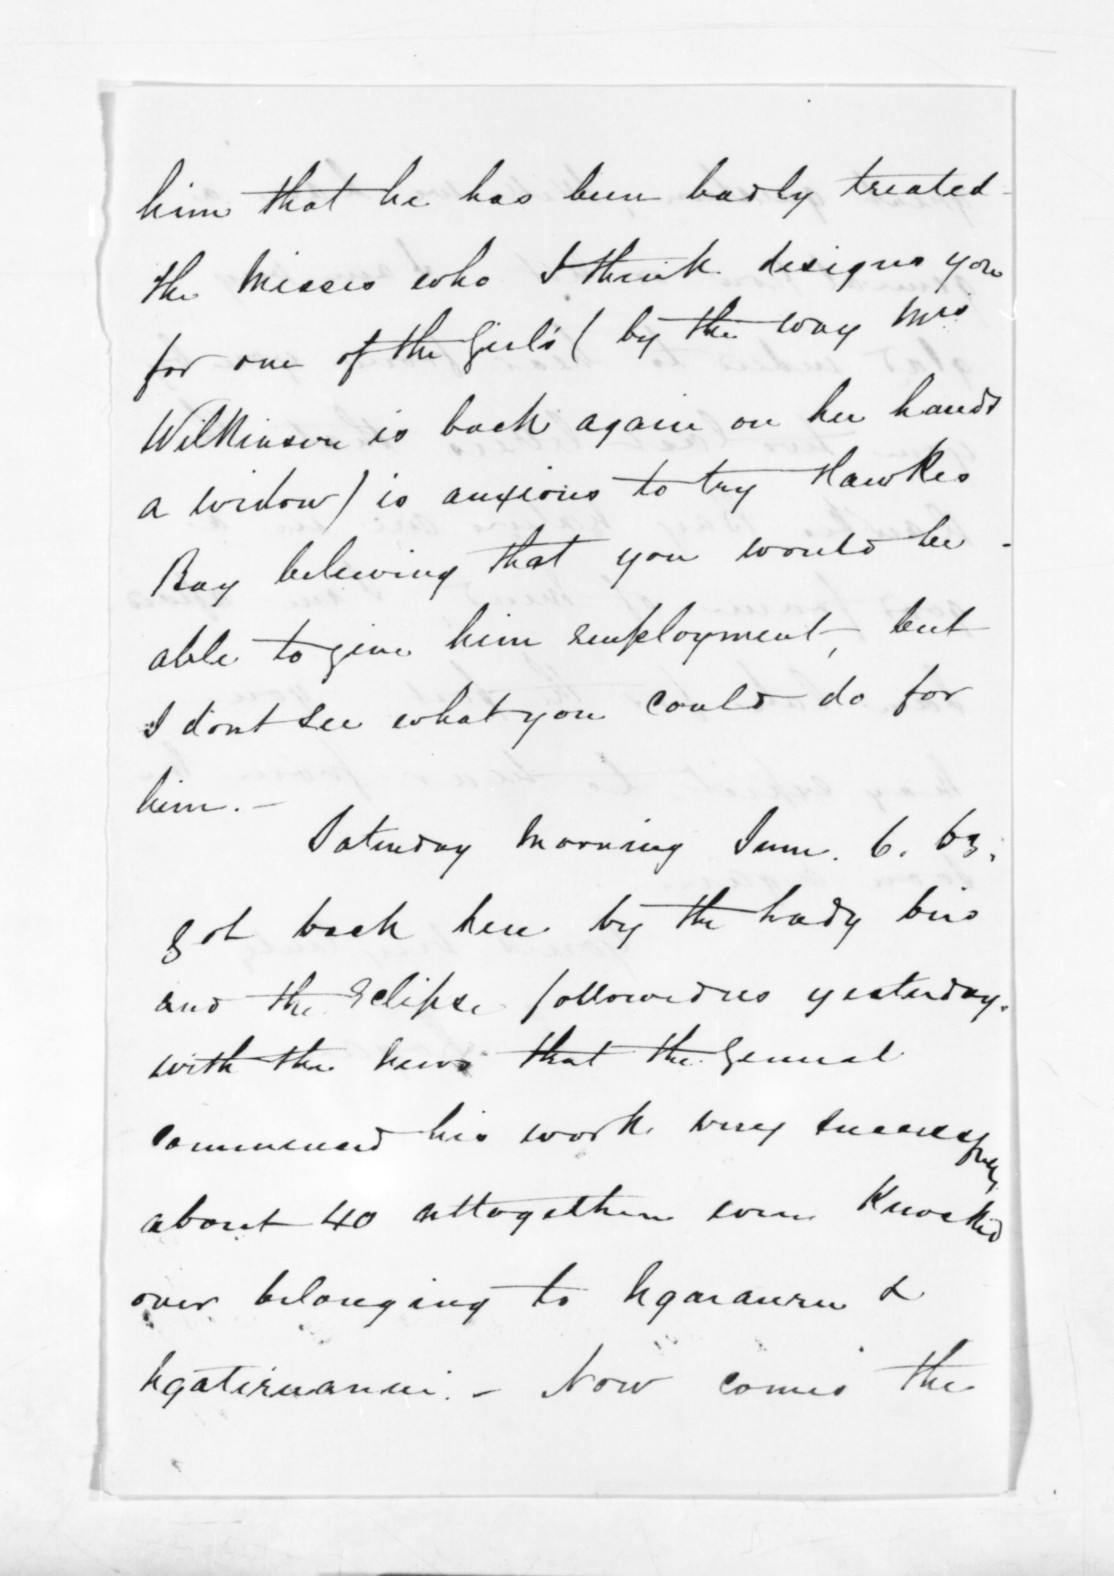 him that he has been badly treated -
the Misses who I think designs you
for one of the Girls (by the way Mrs
Wilkinson is back again on her hands
a widow) is anxious to try Hawkes
Bay beleiving that you would be -
able to give him employment, but
I dont see what you could do for
him. -
Saturday Morning June. 6. 63.
got back here by the Lady bird
and the Eclipse followed us yesterday.
with the News that the General
commenced his work very successfully
about 40 alltogether were Knocked
over belonging to Ngarauru &
Ngatiruanui. - Now comes the